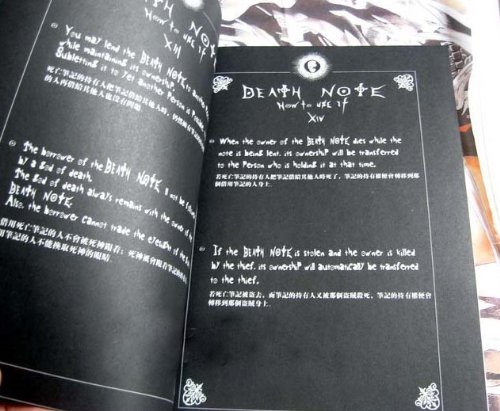 DEATH NOTE
How to use it
XIII
You may lend the DEATH NOTE to
while maintaining its ownership.
Subletting it to yet another person is
死亡筆記的持有人把筆記借給其他人時,
的人再借給其他人也沒有問題
The borrower of the DEATH NOTE not be followed
by a God of death.
The God of death always remains with the owner of
DEATH NOTE
Also, the borrower cannot trade the eyesight of the
借用死亡筆記的人不會被死神跟著,死神
用筆記的人不能換取死神的眼睛
DEATH NOTE
How to use it
XIV
When the owner of the DEATH NOTE dies while the
note is being lent, its ownership will be transferred
to the person who is holding it at that time.
若死亡筆記的持有人把筆記借給其他人時死了,筆記的持有權便會轉移到那
個借用筆記的人身上.
If the DEATH NOTE is stolen and the owner is killed
by the thief, its ownership will automatically be transferred
to the thief.
若死亡筆記被盜去,而筆記的持有人又被那個盜賊殺死,筆記的持有權便會
轉移到那個盜賊身上.